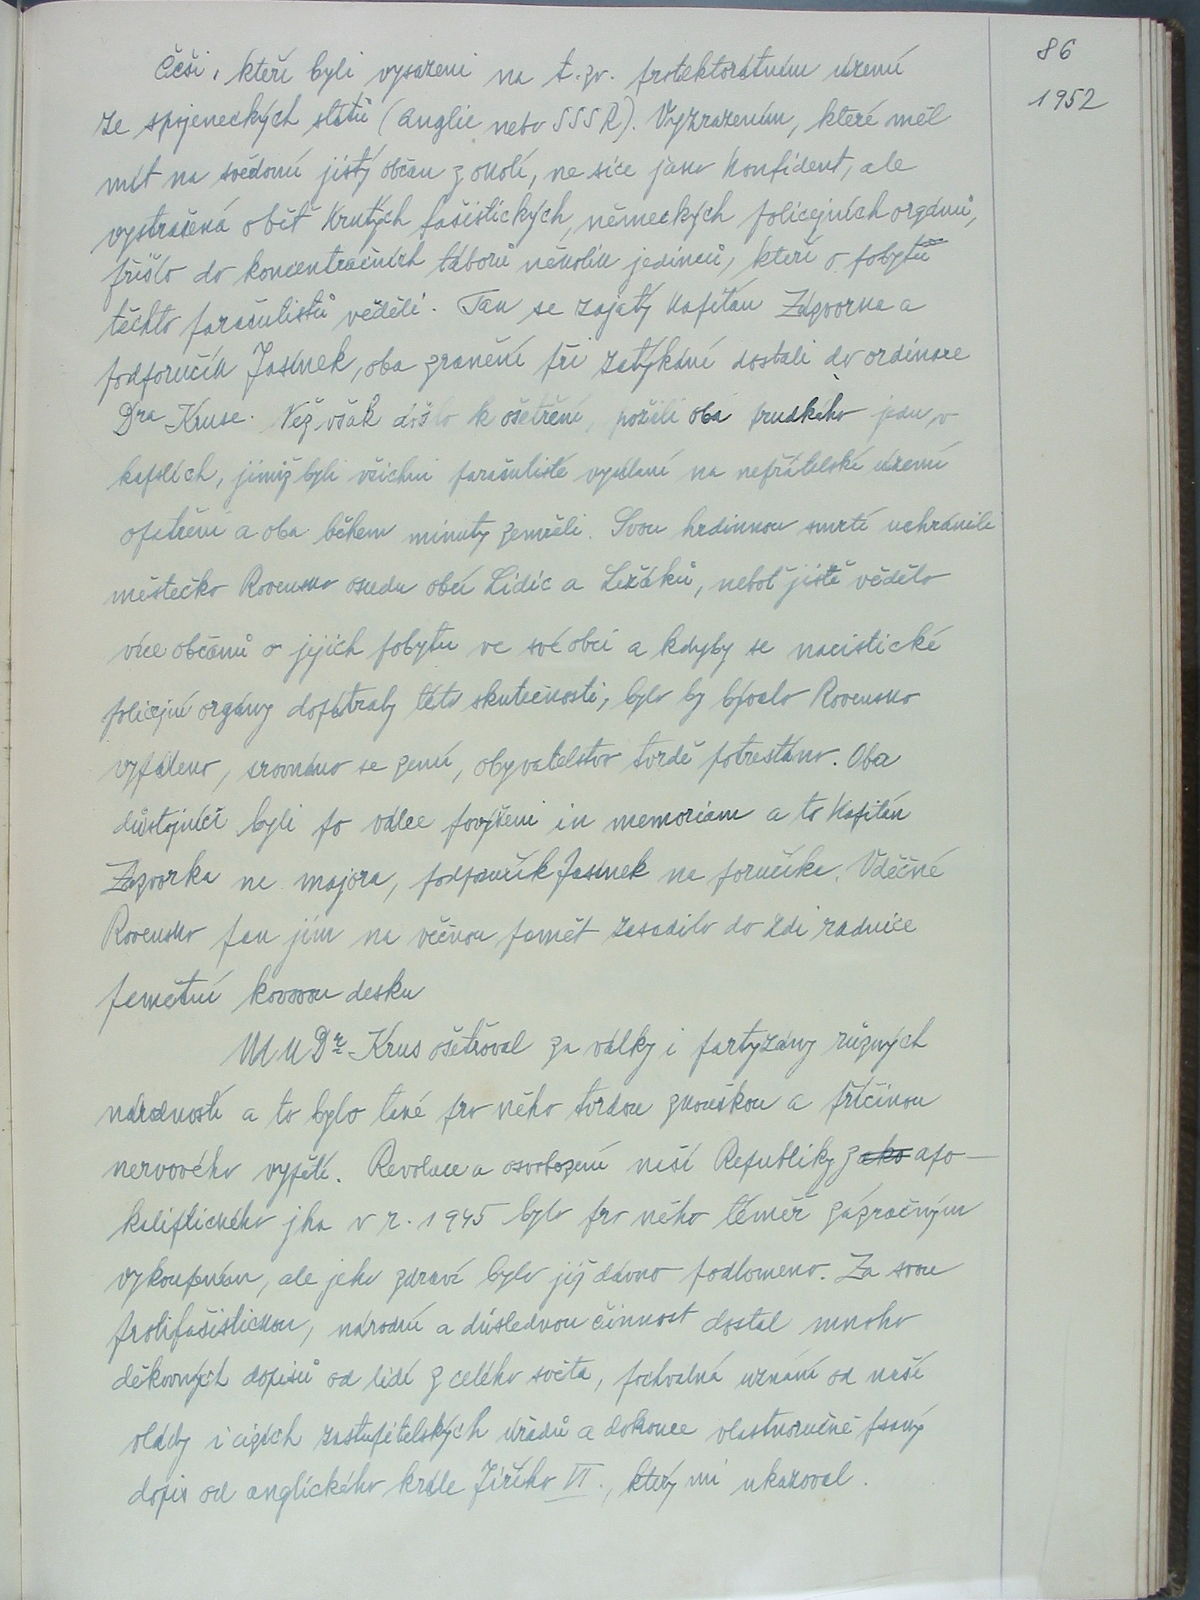 86
1952
Češi, kteří byli vysazeni na t. zv. protektorátním území
ze spojeneckých států (Anglie nebo SSSR). Vyzrazením, které měl
mít na svědomí jistý občan z okolí, ne sice jako konfident, ale
vystrašená oběť krutých fašistických, německých policejních orgánů,
přišlo do koncentračních táborů několik jedinců, kteří o pobytu
těchto parašutistů věděli. Tak se zajatý kapitán Závorka a
podporučík Jasínek, oba zranění při zatýkání dostali do ordinace
Dra Kruse. Než však došlo k ošetření, požili oba prudkého jedu, v
kapslích, jimiž byli všichni parašutisté vyslaní na nepřátelské území
opatřeni a oba během minuty zemřeli. Svou hrdinnou smrtí uchránili
městečko Rovensko osudu obcí Lidic a Ležáků, neboť jistě vědělo
více občanů o jejich pobytu ve své obci a kdyby se nacistické
policejní orgány dopátraly této skutečnosti, bylo by bývalo Rovensko
vypáleno, srovnáno se zemí, obyvatelstvo tvrdě potrestáno. Oba
důstojníci byli po válce povýšeni in memoriam a to kapitán
Závorka na majora, podporučík Jasínek na poručíka. Vděčné
Rovensko pak jim na věčnou paměť zasadilo do zdi radnice
pamětní kovovou desku
MUDr Krus ošetřoval za války i partyzány různých
národností a to bylo také pro něho tvrdou zkouškou a příčinou
nervového vypětí. Revoluce a osvobození naší Republiky z ako apo-
kaliptického jha v r. 1945 bylo pro něho téměř zázračným
vykoupením, ale jeho zdraví bylo již dávno podlomeno. Za svou
protifašistickou, národní a důslednou činnost dostal mnoho
děkovných dopisů od lidí z celého světa, pochvalná uznání od naší
vlády i cizích zastupitelských úřadů a dokonce vlastnoručně psaný
dopis od anglického krále Jiřího VI., který mi ukazoval.